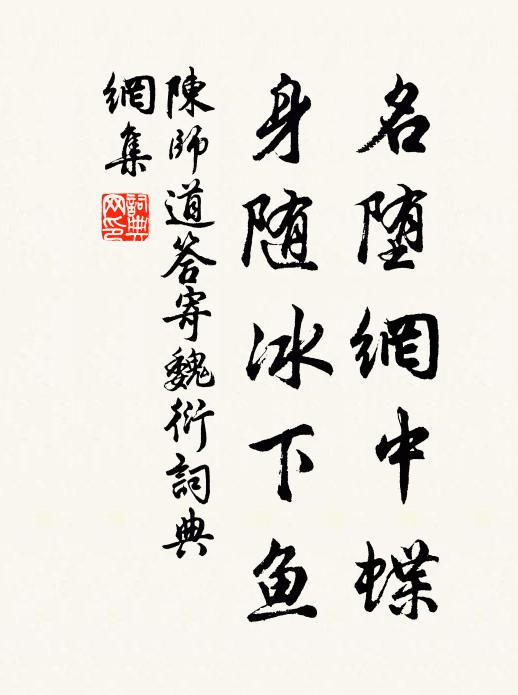 名堕網中蝶
身随冰下鱼
陳師道答寄魏衍詞典
網集
詞典
网印